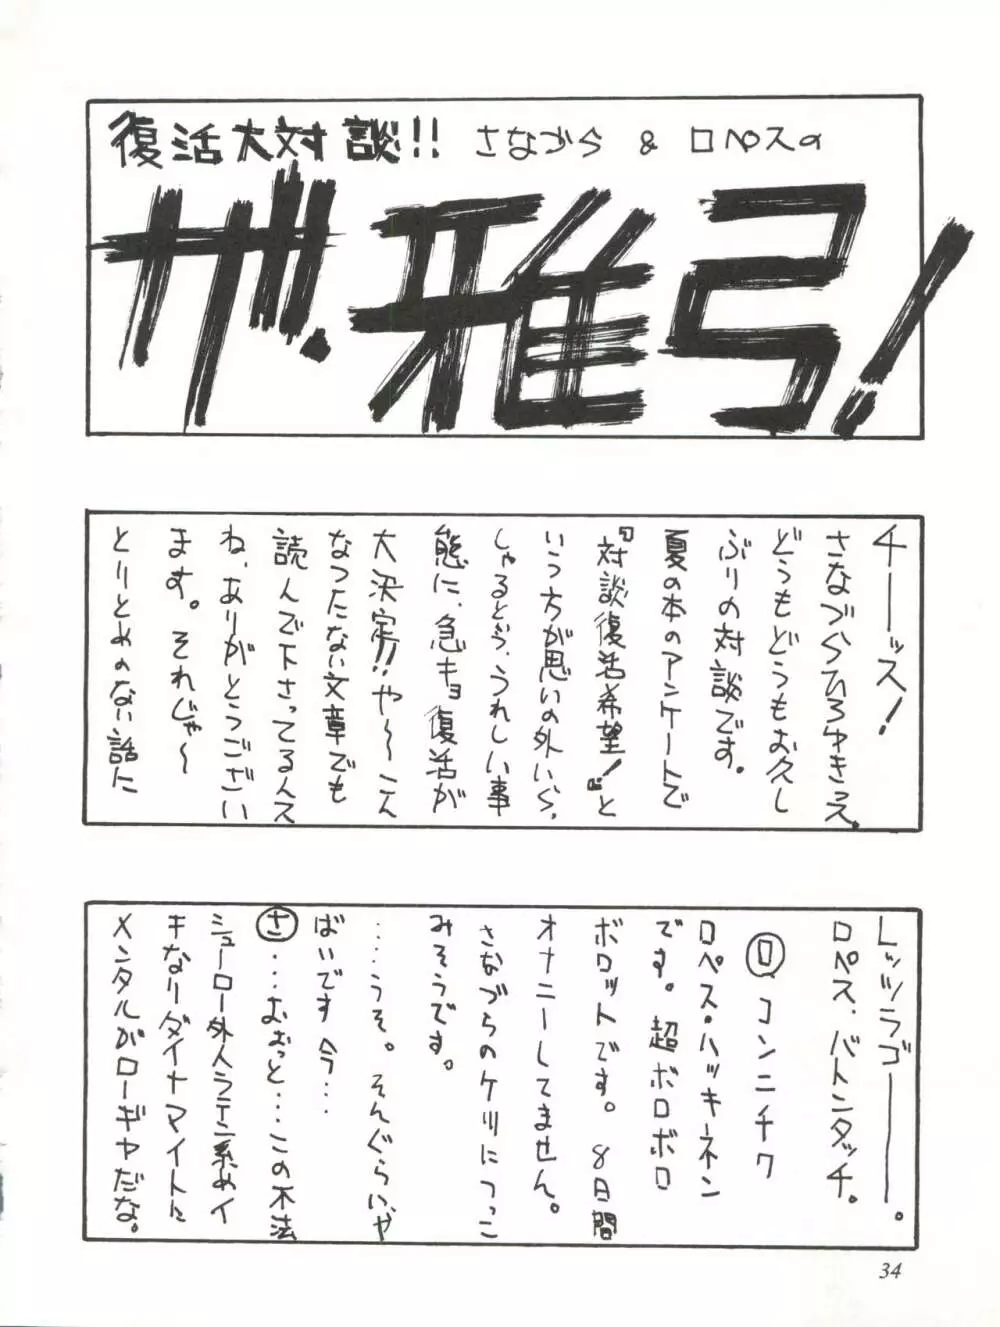 復活大対談!! さなづら & ロペスの
ザ・雅弓!
チーーッス!
さなづらひろゆきっス。
どうもどうもお久し
ぶりの対談です。
夏の本のアンケートで
『対談復活希望!』と
いう方が思いの外いらっ
しゃるという、うれしい事
態に、急キョ復活が
大決定!!や〜〜こん
なつたない文章でも
読んで下さってる人ス
ね、ありがとうござい
ます。それじゃ〜
とりとめのない話に
レッツラゴーーーー。
ロペス、バトンタッチ。
ロ コンニチワ
ロペス・ハッキネン
です。超ボロボロ
ボロットです。8日間
オナニーしてません。
さなづらのケツにつっこ
みそうです。
……うそ。そんぐらいや
ばいです今…
さ …おおっと…この不法
シューロー外人ラテン系めイ
キなりダイナマイトに
メンタルがローギヤだな。
34